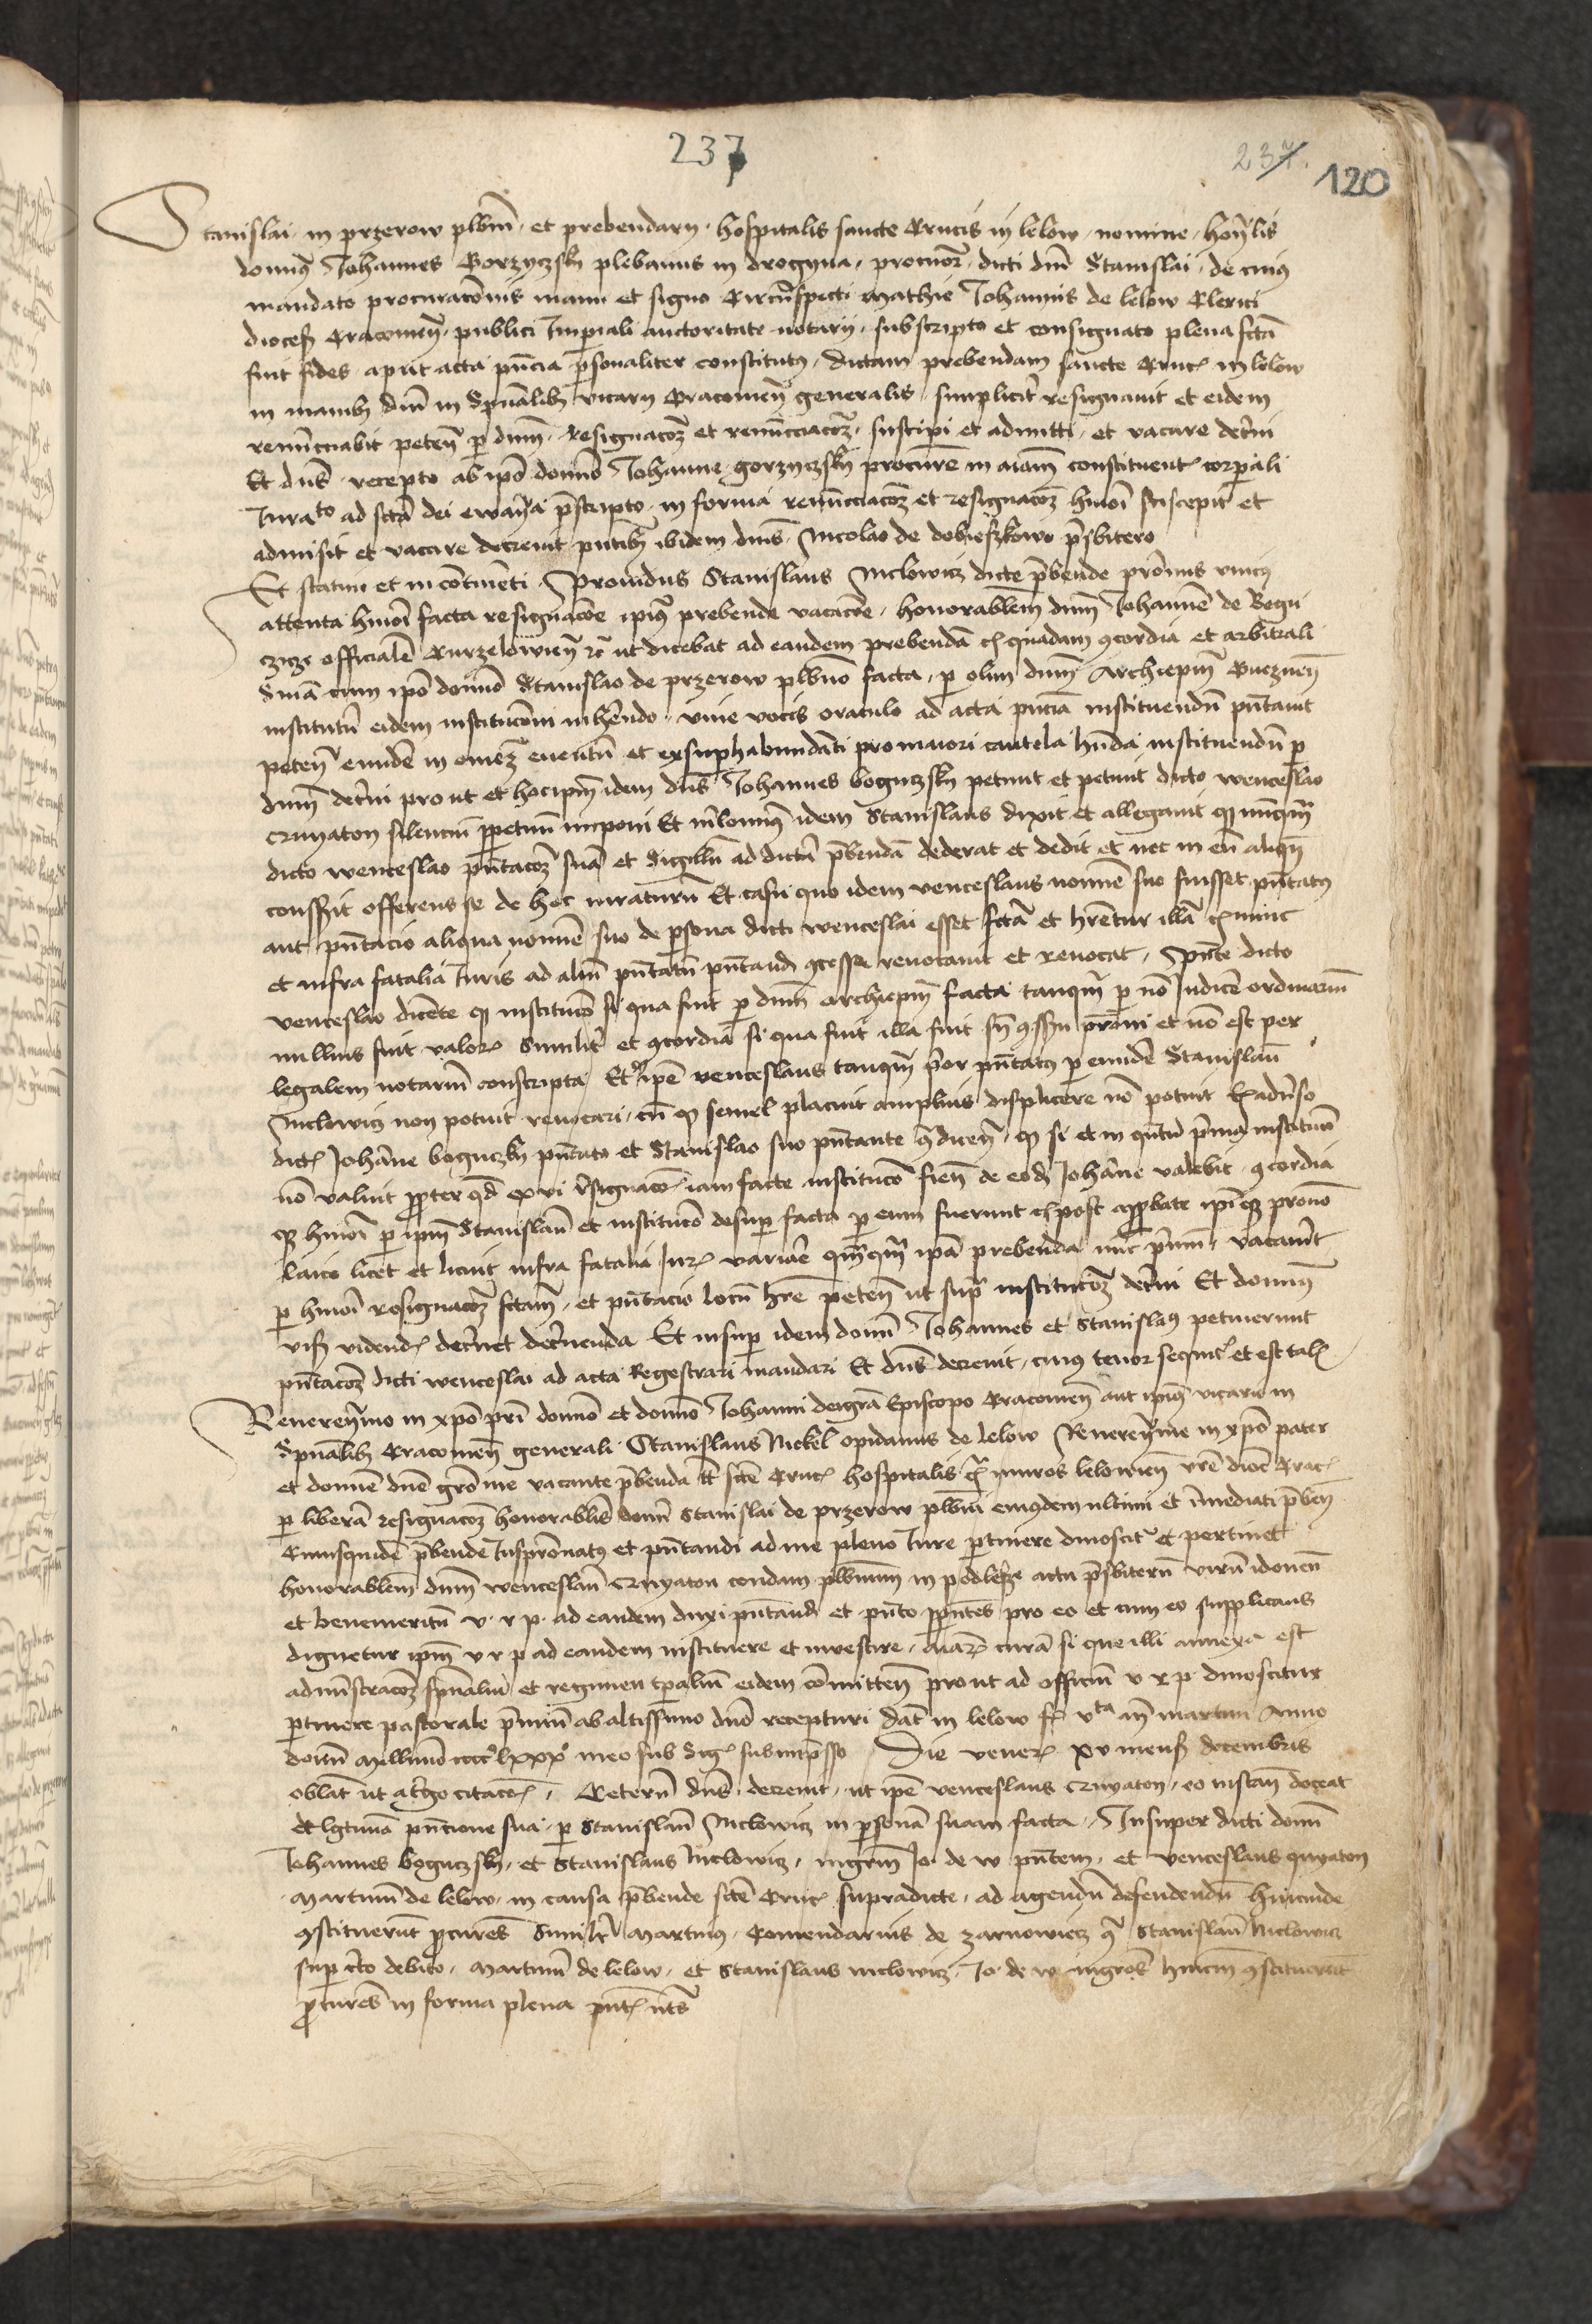 237
237.
120
Stanislai in przerow plbni et prebendarii hospitalis sancte Crucis in lelow nomine honlis
domns Johannes Gorzyczsky plebanus in drogyna procuor dicti dni Stanislai de cuius
mandato procuracionis manu et signo Circumspecti Mathie Johannis de lelow Clerici
dioces Cracovien publici Imperiali auctoritate notarii subscripto et consignato plena fcta
fuit fides aput acta pncia personaliter constitutus dictam prebendam sancte Cruc in lelow
in manibus dni in Spualibus vicarii Cracovien generalis simpliciter resignavit et eidem
renunciavit peten per dnm resignacoem et renuncciacoem suscipi et admitti et vacare decerni
Et dns recepto ab ipo domno Johanne gorzyczsky procure in aiam constituent corporali
Iurato ad scta dei ewanlia prescripto in forma renuncciacoem et resignacoem hmoi suscepit et
admisit et vacare decrevit pntibus ibidem dnis Nicolao de dobieszkowo presbitero
Et statim et in continenti Providus Stanislaus Niclowicz dicte prebende pronus unicus
attenta hmoi facta resignacoe ipius prebende vacacoe honorablem dnm Johannem de Bogu
czicze officialem Curzelowien etc ut dicebat ad eandem prebendam ex quadam concordia et arbitrali
Sniam cum ipo domno Stanislao de przerow plbno facta per olim dnm Archiepm Gneznen
institutum eidem institucioni inherendo vive vocis oraculo ad acta pncia instituendum pntavit
peten eundem in omnem eventum et exsuperhabundanti pro maiori cautela hnda instituendum per
dnm decerni prout et hoc ipm idem dns Johannes boguczsky petivit et petiit dicto wenceslao
crwaton silencium perpetuum imponi Et nilominus idem Stanislaus dixit et allegavit quod nunquam
dicto wenceslao pntacoem suam et Sigillum ad dictam prebendam dederat et dedit et nec in eum aliqn
consensit offerens se de hoc iuraturum Et casu quo idem venceslaus nomine suo fuisset pntatus
aut pntacio aliqua nomine suo de persona dicti wenceslai esset fcta et hretur illam ex nunc
et infra fatalia Iuris ad alium pntatum pntand concesse revocavit et revocat pnte dicto
venceslao dicente quod institucio si qua fuit per dnm archiepm facta tanquam per non Iudicem ordinarium
nullius fuit valoris Similiter et concordia si qua fuit illa fuit sn consensu proni et non est per
legalem notarium conscripta Et quod ipe venceslaus tanquam prior pntatus per eundem Stanislaum
Niclowicz non potuit revocari cum quod semel placuit amplius displicere non potuit Ex adverso
dict Johanne boguczky pntato et Stanislao suo pntante contra dicen quod si et in quantum prima institucio
non valuit propter quod ex vi resignacois iam facte institucio fien de eodem Johanne valebit concordia
quod hmoi per ipm Stanislaum et institucio desuper facta per eum fuerunt ex post approbate ipi quod prono
laico licet et licuit infra fatalia Iuris variare quamquam ipa prebenda nunc primum vacaverit
per hmoi resignacoem fctam et pntacio locum hre peten ut supra institucoem decerni Et domnus
visis videndis decrevet decernenda Et insuper idem domn Johannes et Stanislaus petiverunt
pntacoem dicti wenceslai ad acta Registrari mandari Et dns decrevit cuius tenor sequitur et est talis
Reverenmo in xpo pri domno et domno Johanni dei gra Episcopo Cracovien aut ipius vicario in
Spualibus Cracovien generali Stanislaus Nickel opidanus de lelow Reverenme in xpo pater
et domne dne grose me vacante prebenda tt scte Cruc hospitalis extra muros lelowien vre dioc Crac
per liberam resignacoem honorablis domni Stanislai de przerow plbni eiusdem ultimi et immediati preben
Cuiusquidem prebende Iuspronatus et pntandi ad me pleno Iure pertinere dinoscitur et pertinet
honorablem dnm wenceslaum crwaton condam plbnum in podlesze actu presbiterum virum idoneum
et benemeritum v r p ad eandem duxi pntand et pnto pptes pro eo et cum eo supplicans
dignetur ipm v r p ad eandem instituere et investire aiarum curam si que illi annexa est
administracoem spualium et regimen tpralium eidem committen prout ad officium v r p dinoscitur
pertinere pastorale premium ab altissimo dno recepturi Dat in lelow fr vta an martini Anno
domni Millimo cccc lxxx meo sub Sig subimpresso Die vener xv mensis decembris
oblat ut atergo citacois Ceterum dns decrevit ut ipe venceslaus crwaton eo instan doceat
de lgtima pntcione sua per Stanislaum Niclowicz in personam suam facta Insuper dicti domni
Johannes boguczsky et Stanislaus Niclowicz mgrm Jo de w pntem et venceslaus qwaton
Martinum de lelow in causa prebende scte Cruc supradicte ad agendum defendendum hincinde
constituerunt procures Similiter Martinus Comendarius de zarnowiecz contra Stanislaum Niclowicz
super certo debito Martinum de lelow et Stanislaus niclowicz Jo de w mgros hincin constituerunt
procures in forma plena pntibus notis